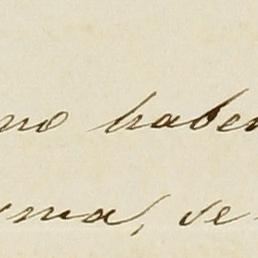 no haber
ma, se